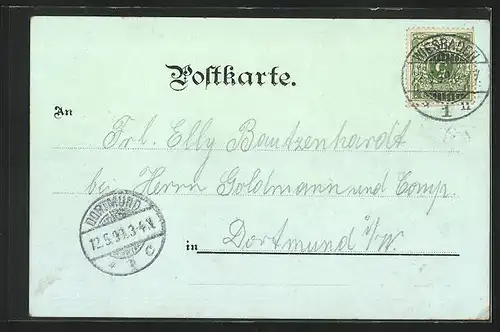 WIESBADEN
1
Postkarte.
An
Frl. Elly Bautzenhardt
bei Herrn Goldmann und Comp.
in Dortmund i/W.
DORTMUND
12.5.99.3-4.V
* 1 c